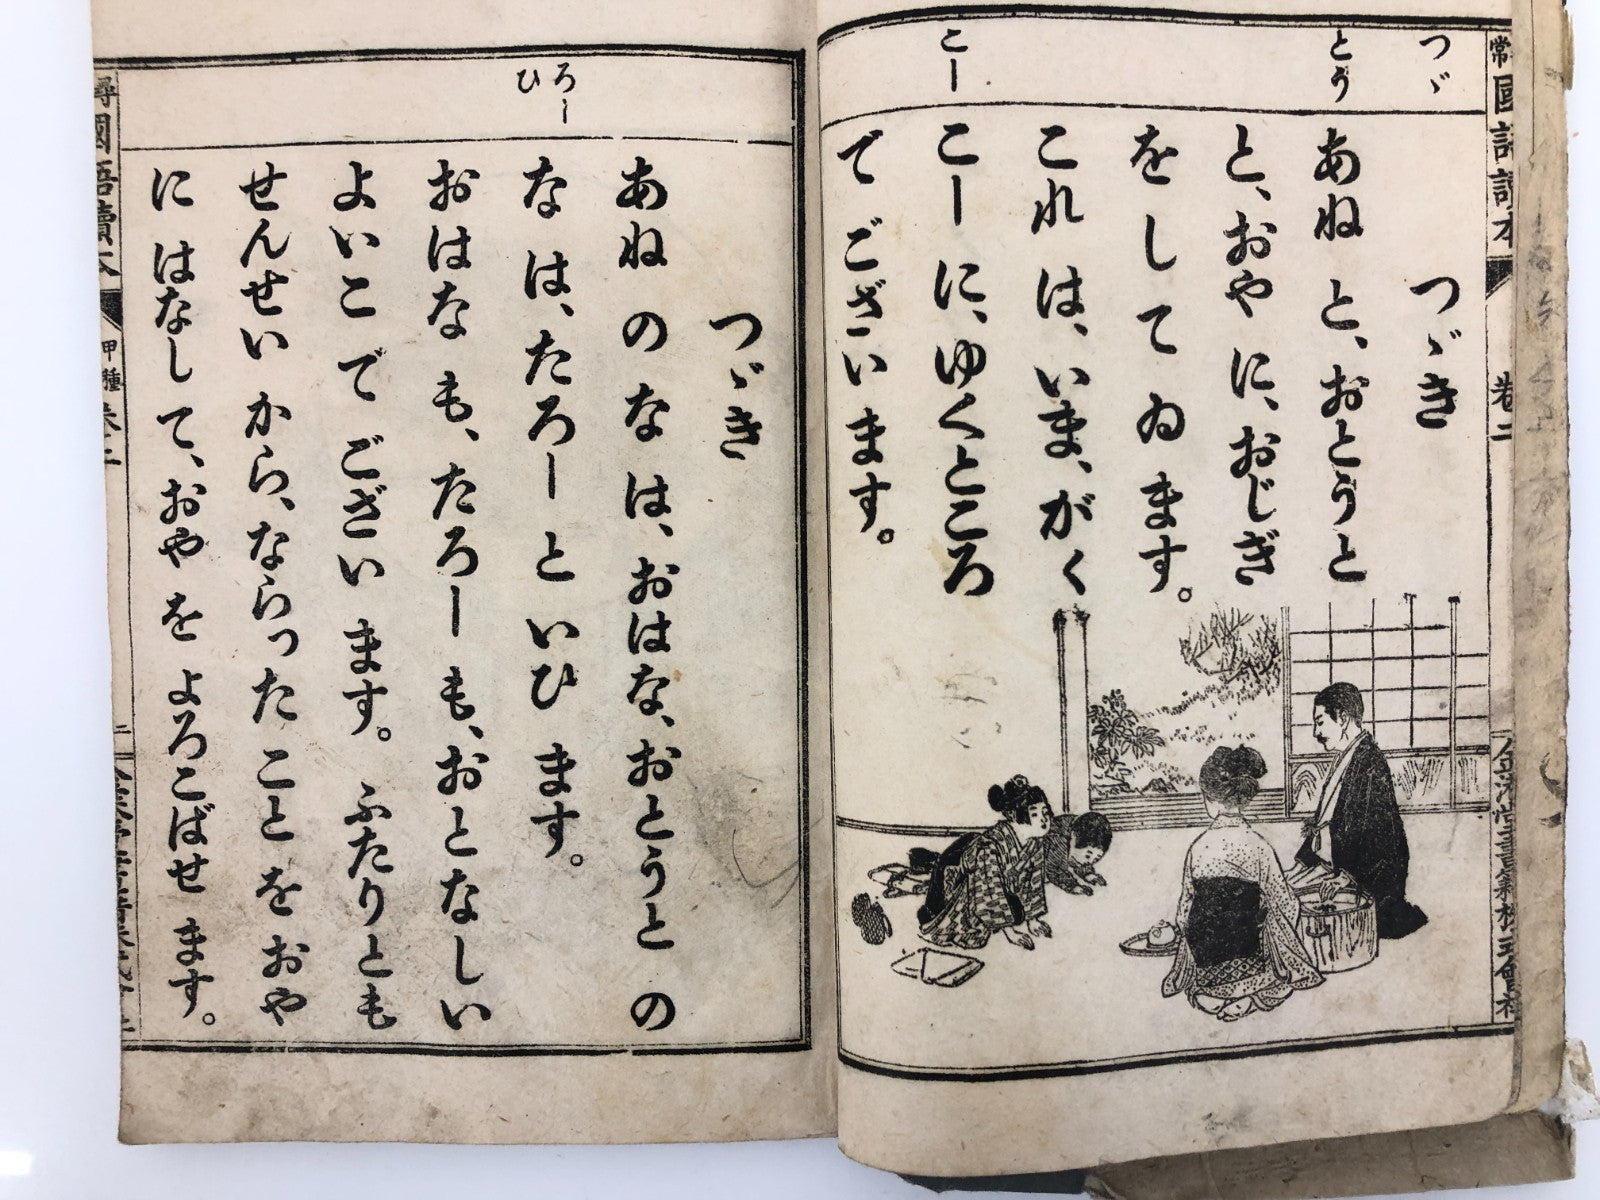 つゞ
とう
こー
つゞき
あね と、おとうと
と、おや に、おじぎ
を して ゐ ます。
これ は、いま、がく
こー に、ゆくところ
で ござい ます。
國語讀本
巻二
ろー
ひ
つゞき
あね の な は、おはな、おとうと の
な は、たろー と いひ ます。
おはな も、たろー も、おとなしい
よいこ で ござい ます。ふたりとも
せんせい から、ならった ことを おや
に はなし て、おや を よろこばせ ます。
尋國語讀本
甲種 巻二
二